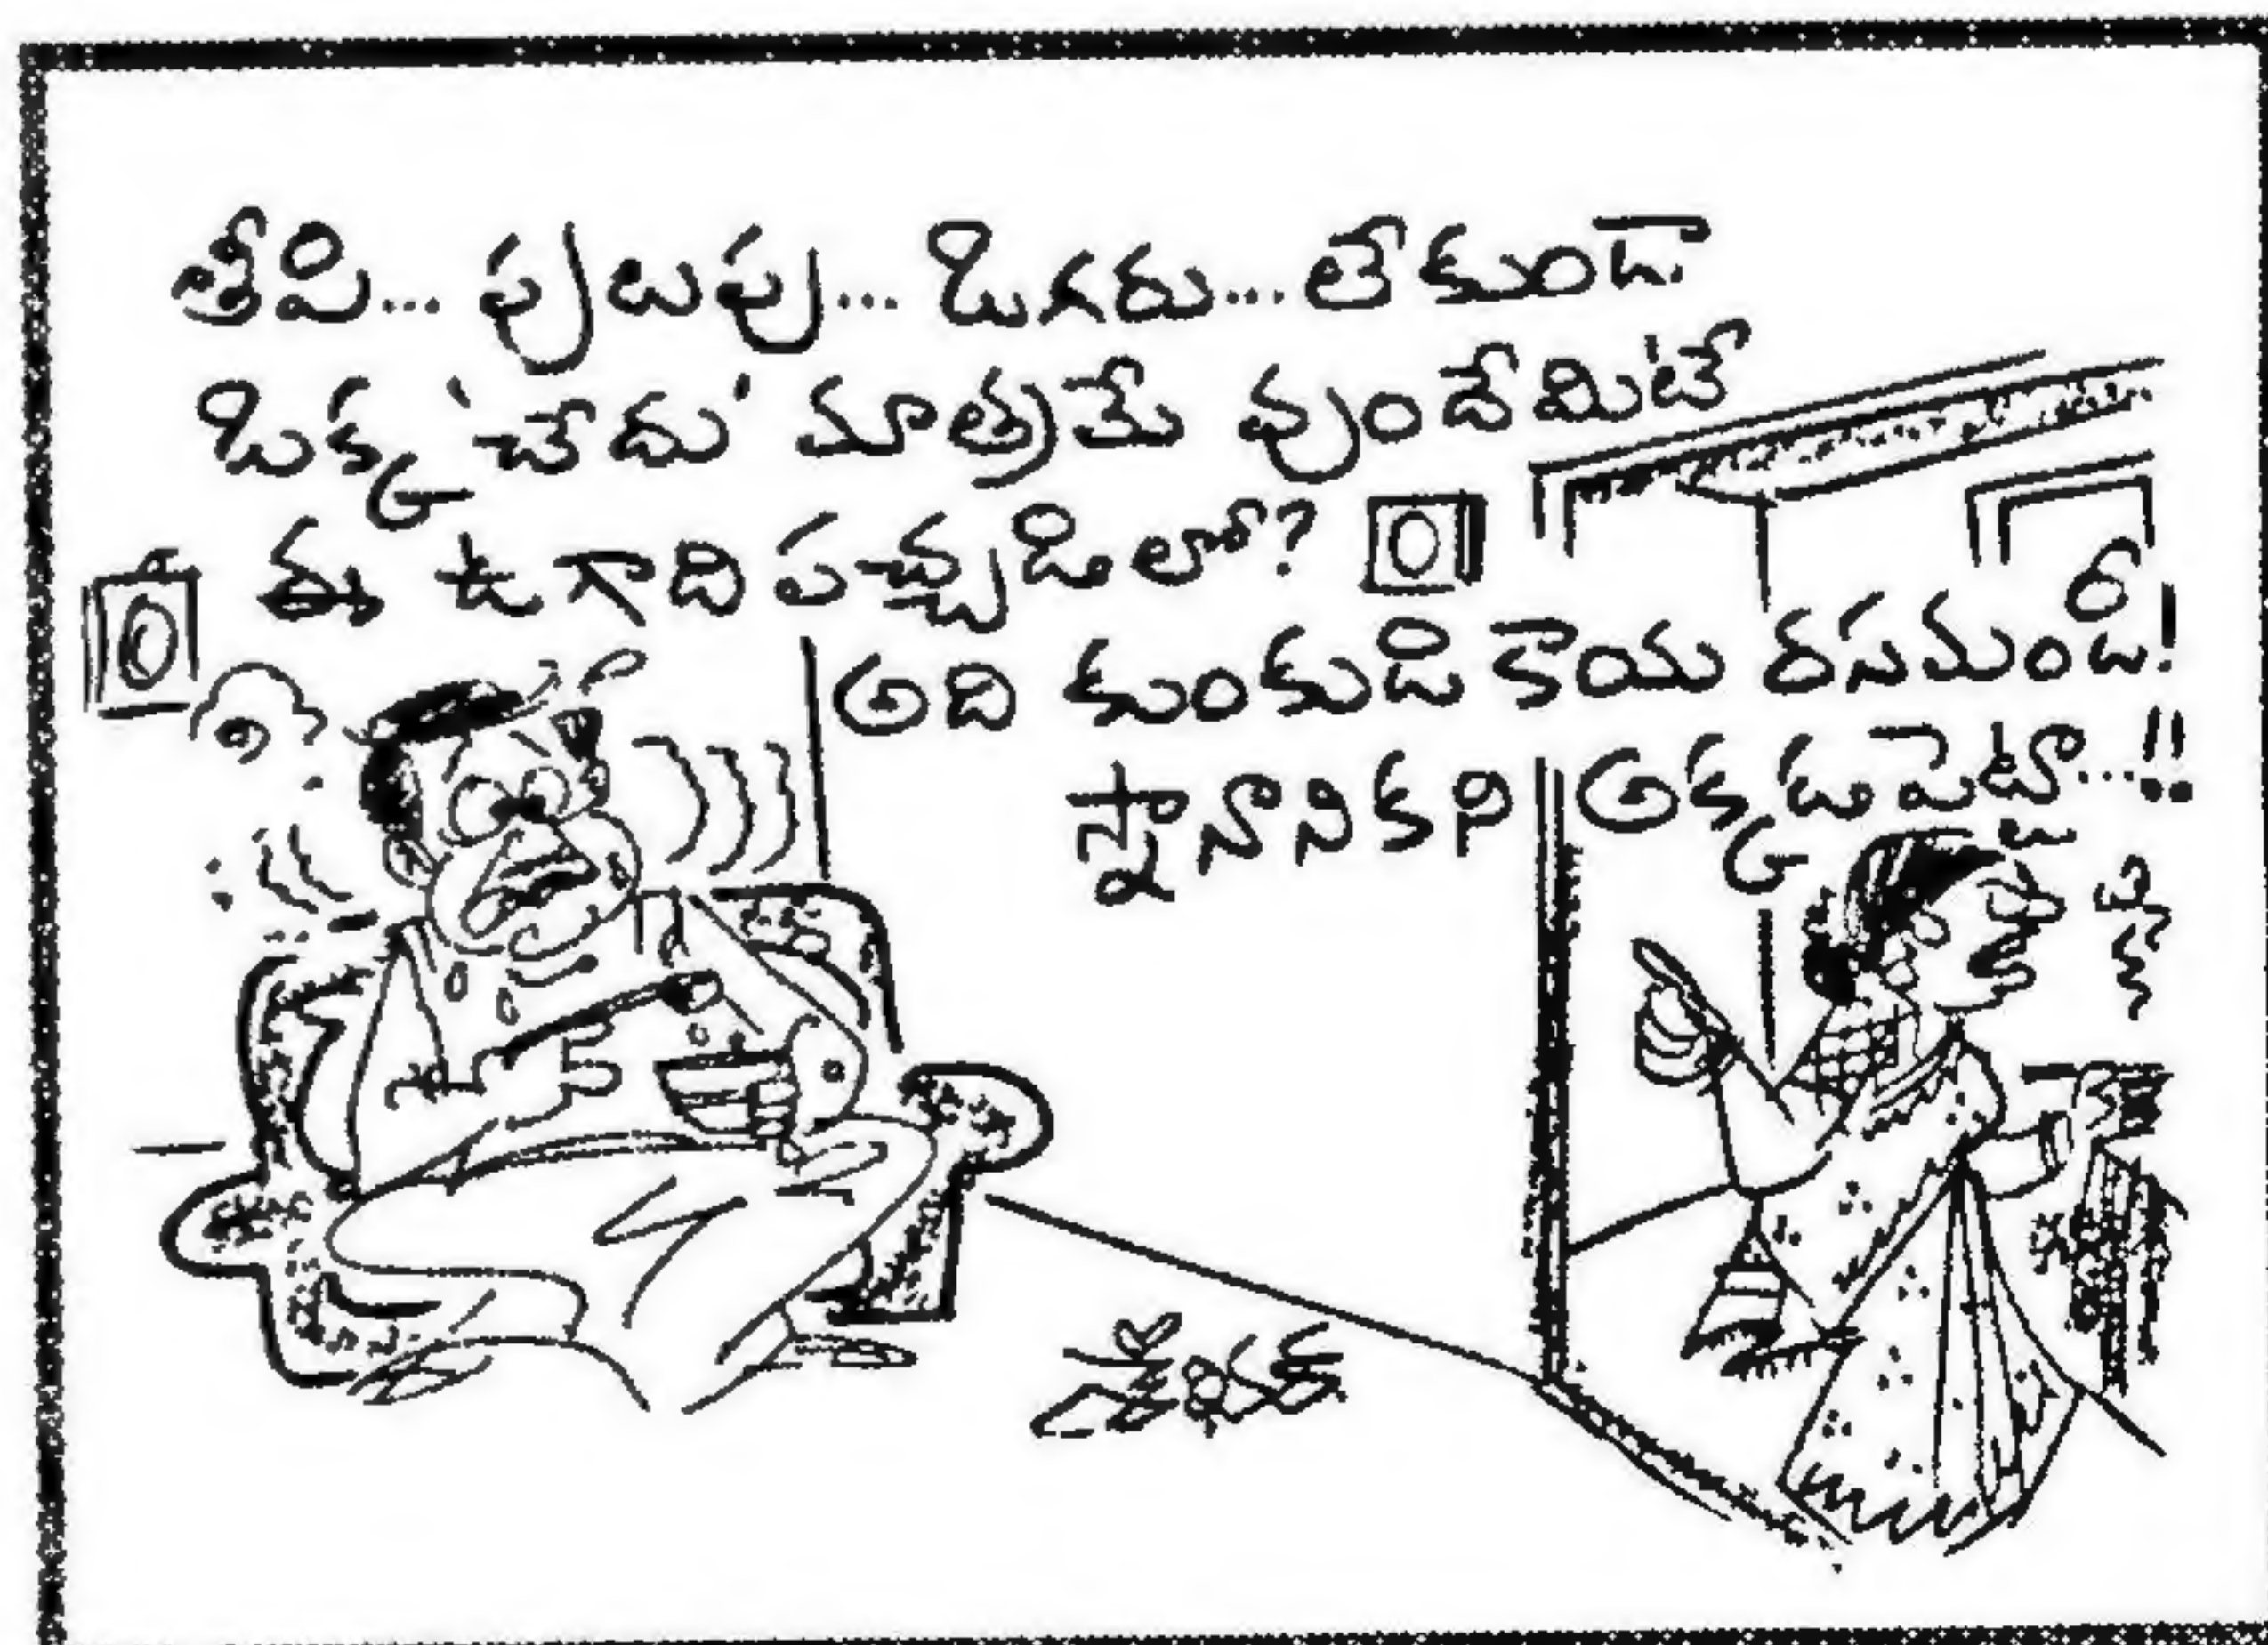 తీపి... పులుపు... ఒగరు... లేకుండా
ఒక్క 'చేదు' మాత్రమే వుందేమిటే
ఈ ఉగాది పచ్చడిలో?
అది కుంకుడి కాయ రసమండీ!
స్నానానికని అక్కడ పెట్టా...!!
శేఖర్